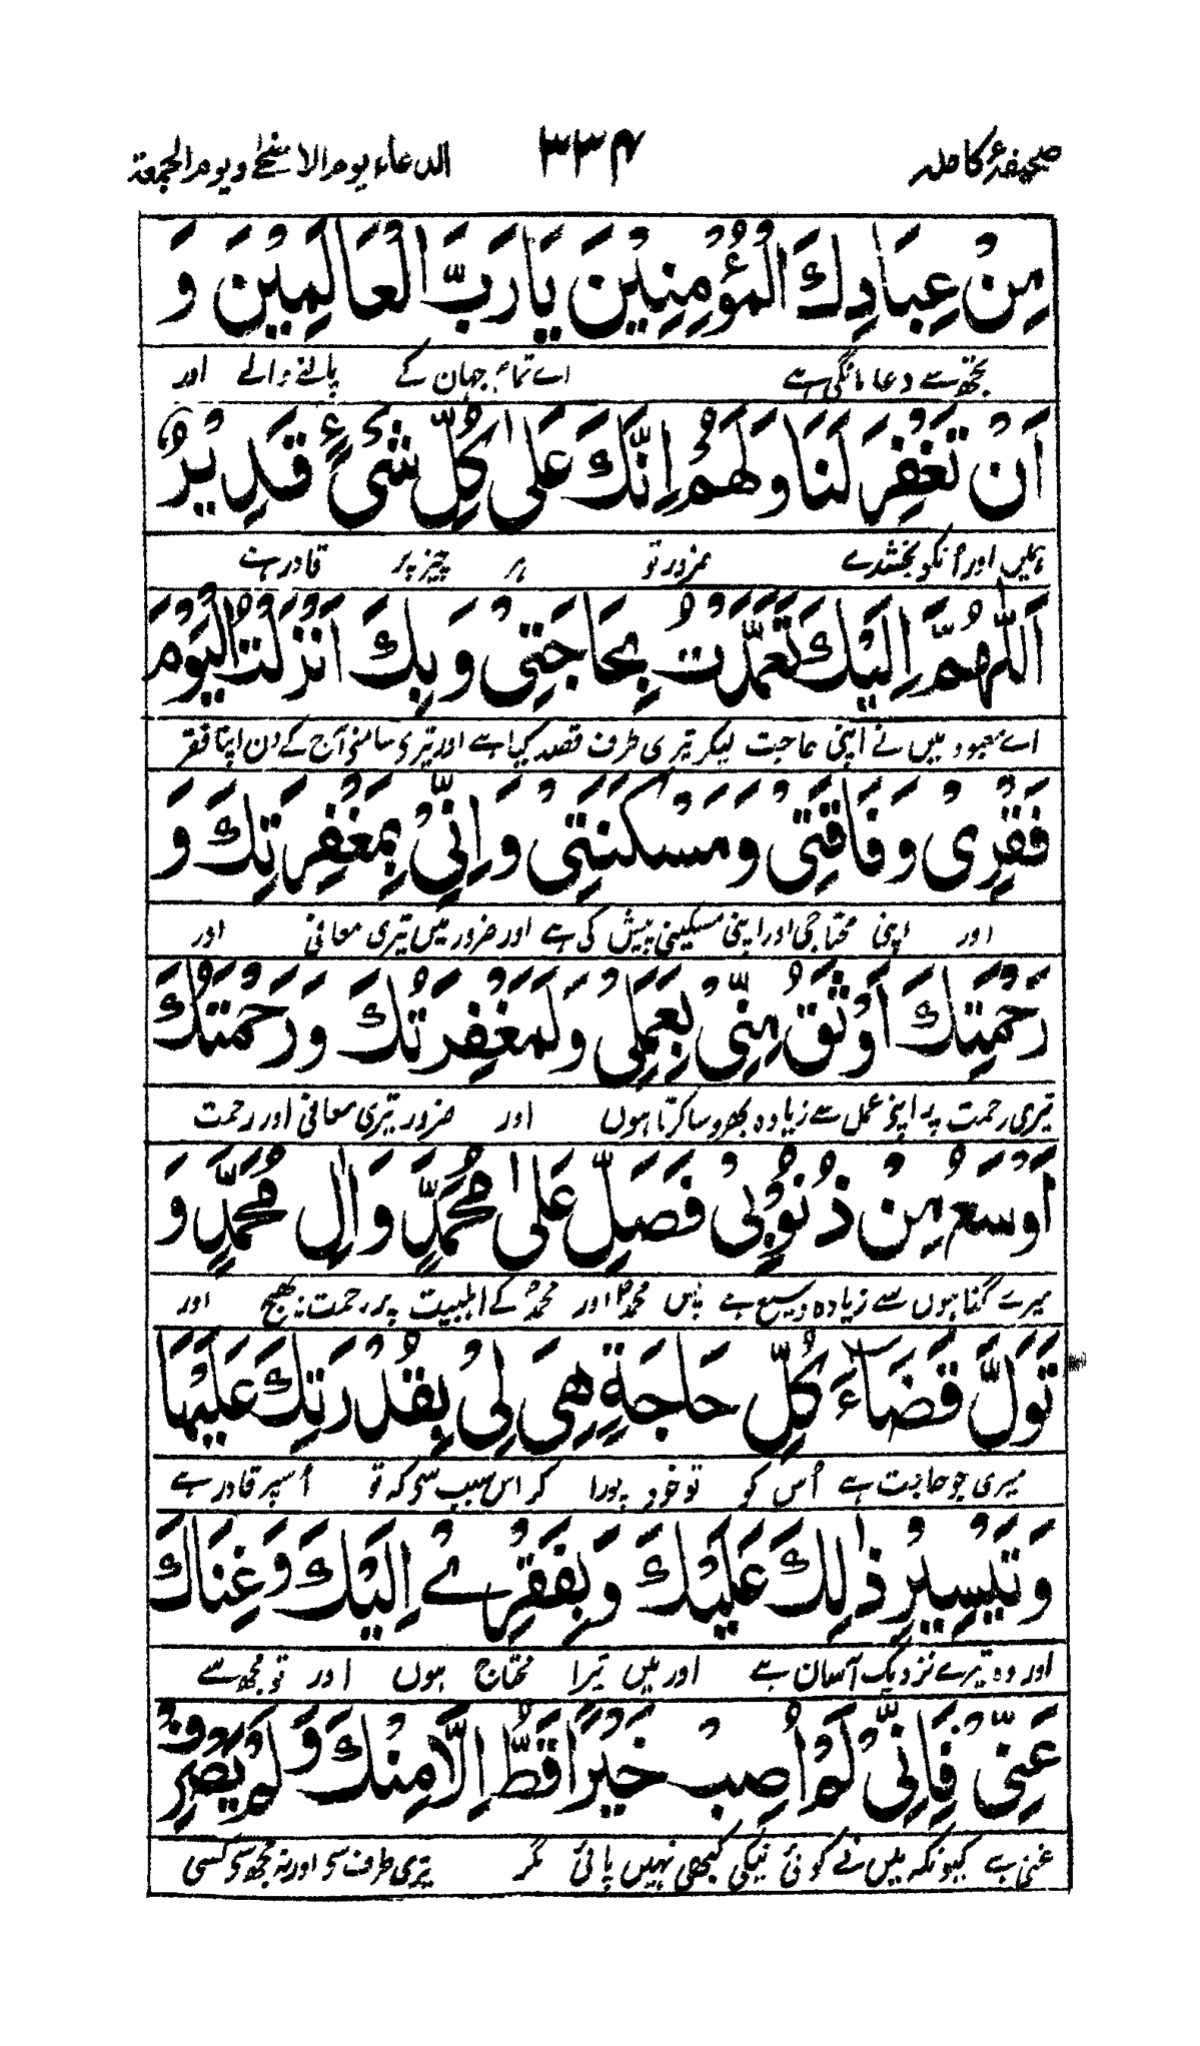 صحیفۂ کاملہ ۳۳۴ الدعاء یوم الاضحٰے و یوم الجمعة
مِنْ عِبَادِكَ الْمُؤْمِنِيْنَ يَا رَبَّ الْعَالَمِيْنَ وَ
تجھ سے دعا مانگی ہے اے تمام جہان کے پالنے والے اور
اَنْ تَغْفِرَ لَنَا وَلَهُمْ اِنَّكَ عَلٰى كُلِّ شَىْءٍ قَدِيْرٌ
ہمیں اور اُنکو بخشدے ضرور تو ہر چیز پر قادر ہے
اَللّٰهُمَّ اِلَيْكَ تَعَمَّدْتُ بِحَاجَتِىْ وَ بِكَ اَنْزَلْتُ الْيَوْمَ
اے معبود میں نے اپنی حاجت لیکر تیری طرف قصد کیا ہے اور تیری سامنے آج کے دن اپنا فقر
فَقْرِىْ وَ فَاقَتِىْ وَ مَسْكَنَتِىْ وَ اِنِّىْ بِمَغْفِرَتِكَ وَ
اور اپنی محتاجی اور اپنی مسکینی پیش کی ہے اور ضرور میں تیری معافی اور
رَحْمَتِكَ اَوْثَقُ مِنِّىْ بِعَمَلِىْ وَ لَمَغْفِرَتُكَ وَ رَحْمَتُكَ
تیری رحمت پہ اپنے عمل سے زیادہ بھروسا کرتا ہوں اور ضرور تیری معافی اور رحمت
اَوْسَعُ مِنْ ذُنُوْبِىْ فَصَلِّ عَلٰى مُحَمَّدٍ وَ اٰلِ مُحَمَّدٍ وَ
میرے گناہوں سے زیادہ وسیع ہے پس محمدؐ اور محمدؐ کے اہلبیت پر رحمت بھیج اور
تَوَلَّ قَضَاءَ كُلِّ حَاجَةٍ هِىَ لِىْ بِقُدْرَتِكَ عَلَيْهَا
میری جو حاجت ہے اُس کو تو خود پورا کر اس سبب سی کہ تو اُسپر قادر ہے
وَ تَيْسِيْرِ ذٰلِكَ عَلَيْكَ وَ بِفَقْرِىْ اِلَيْكَ وَ غِنَاكَ
اور وہ تیرے نزدیک آسان ہے اور میں تیرا محتاج ہوں اور تو مجھ سے
عَنِّىْ فَاِنِّىْ لَمْ اُصِبْ خَيْرًا قَطُّ اِلَّا مِنْكَ وَ لَمْ يَصْرِفْ
غنی ہے کیونکہ میں نے کوئی نیکی کبھی نہیں پائی مگر تیری طرف سی اور نہ مجھ سی کسی